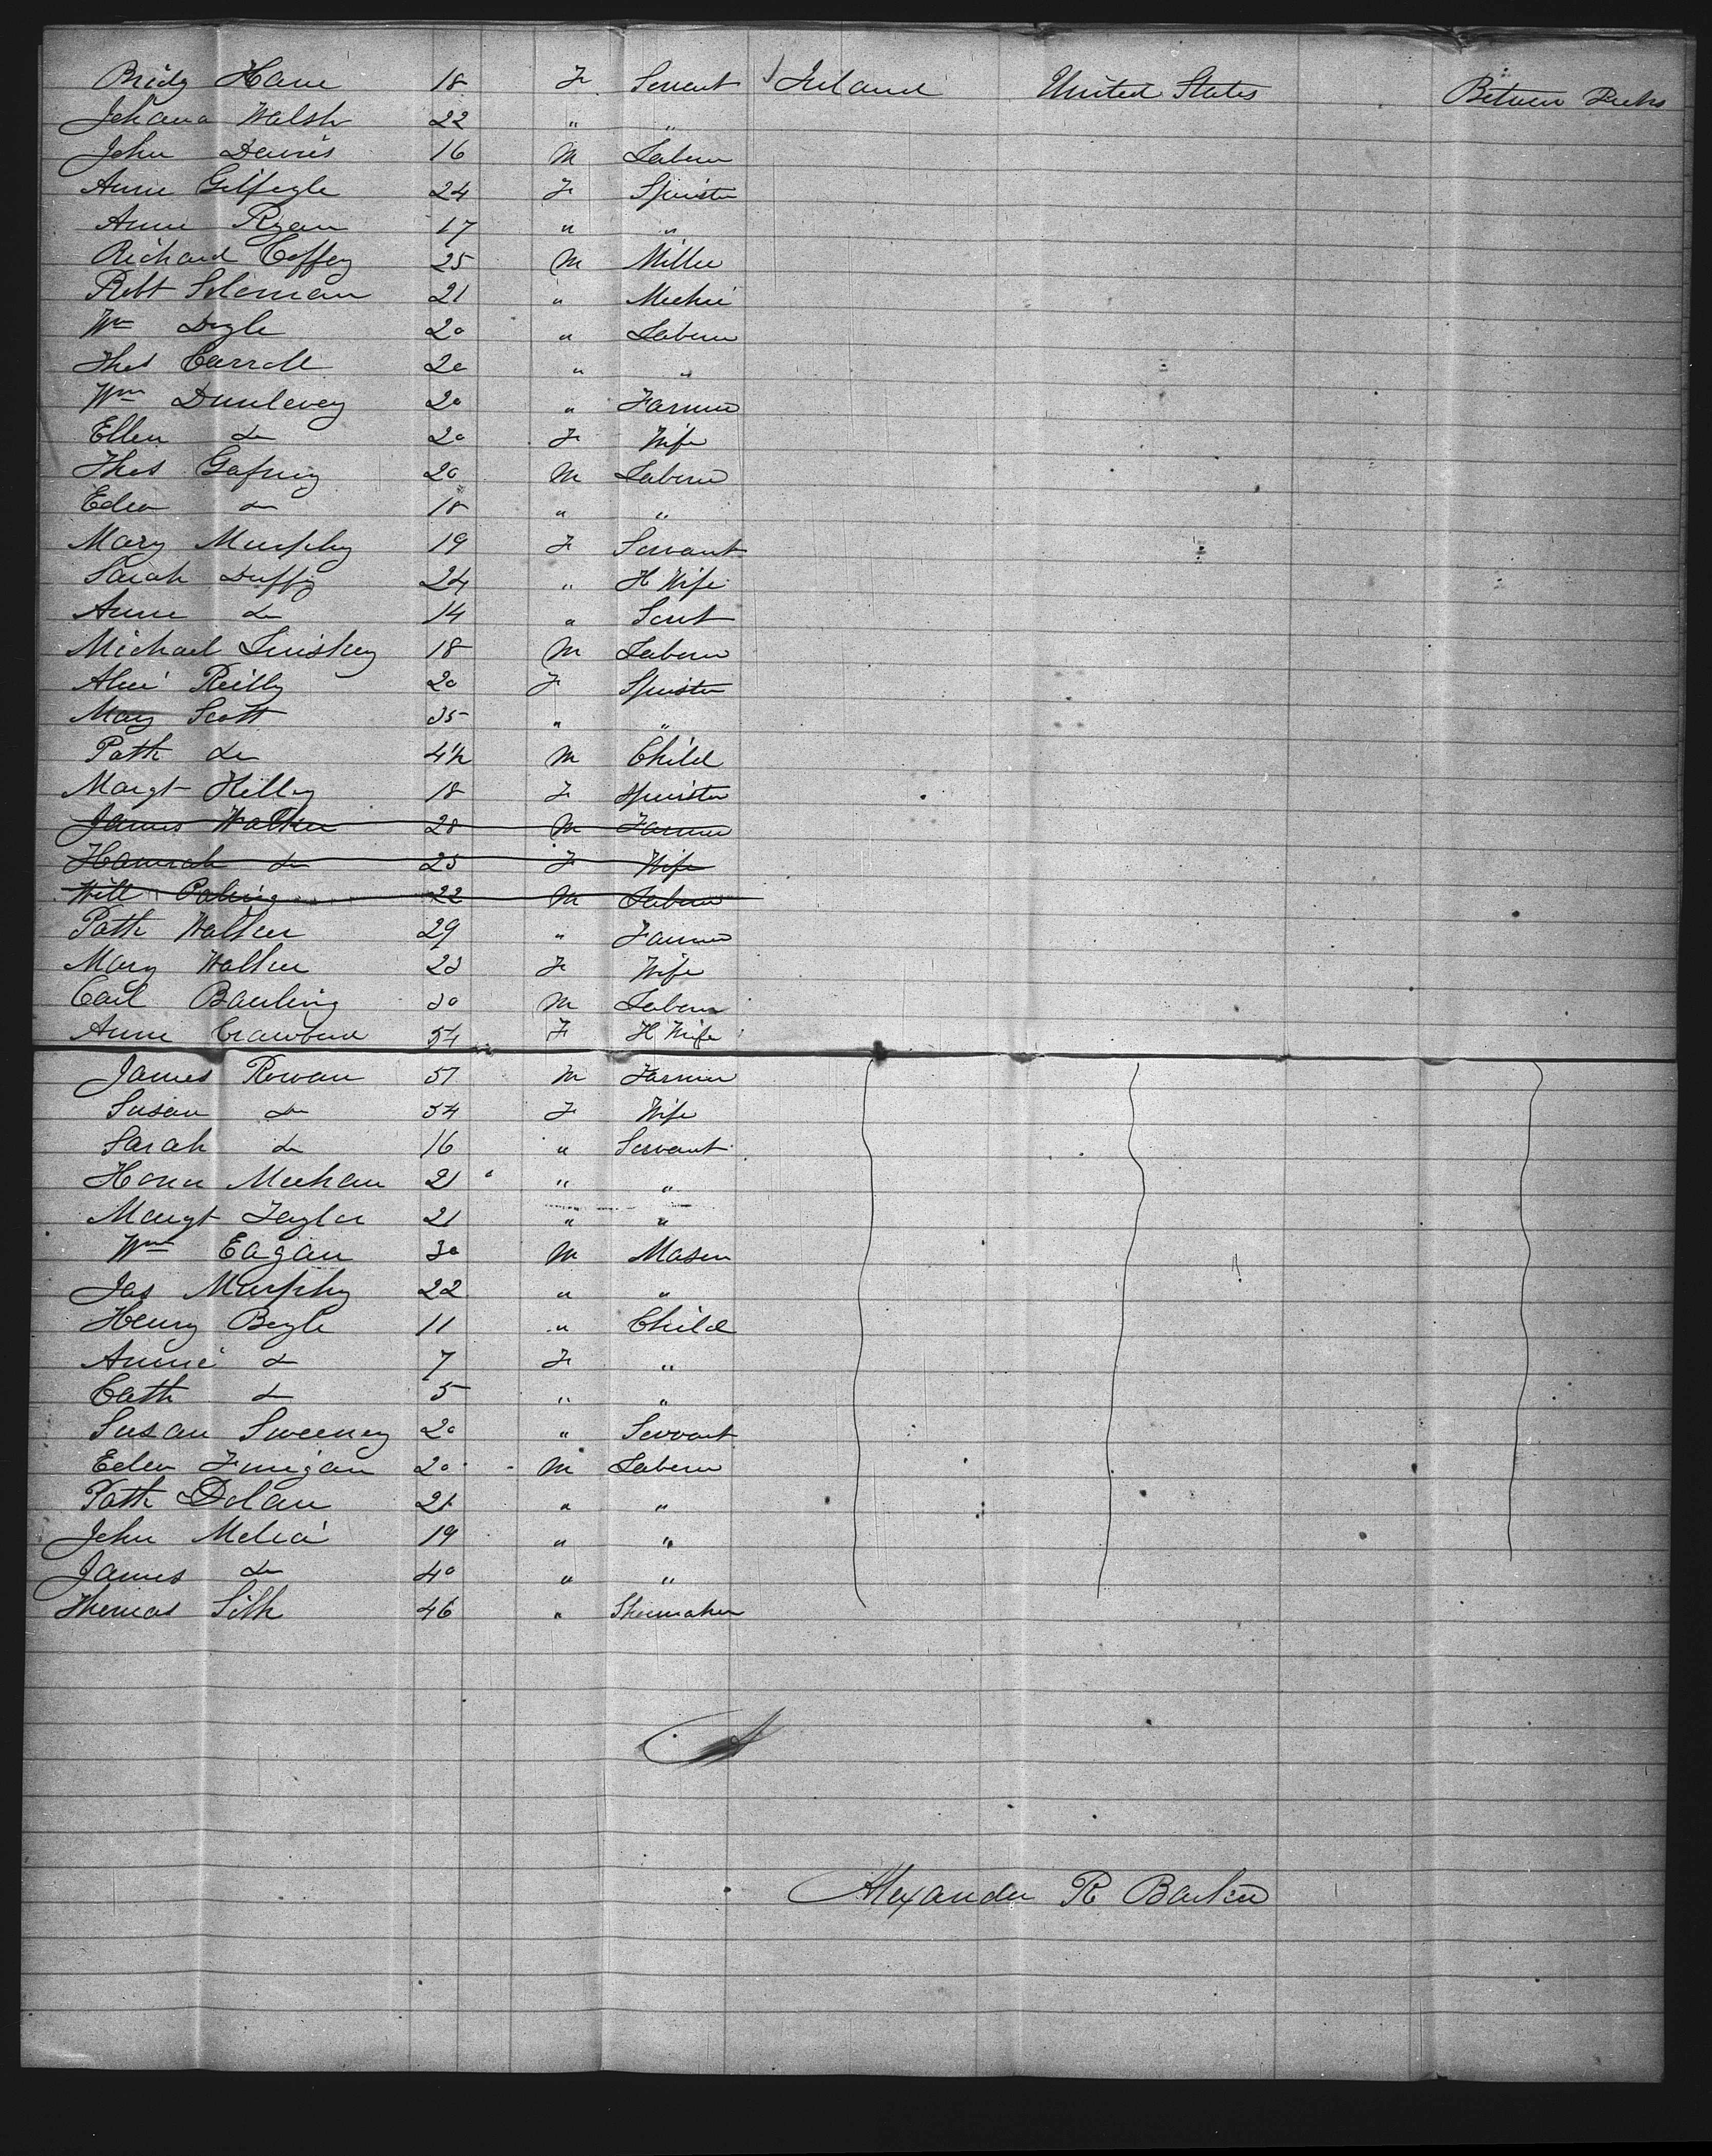 Bridg Hane 18 F Servant Ireland United States Between Decks
Johana Walsh 22 " "
John Dennis 16 M Laborer
Anne Gilfogle 24 F Spinster
Anne Ryan 17 " "
Richard Coffey 25 M Miller
Robt Soloman 21 "
Wm Doyle 20 " Laborer
Thos Carroll 20 " "
Wm Dunlevey 20 " Farmer
Ellen do 20 F Wife
Thos Gafney 20 M Laborer
Edwd do 18 " "
Mary Murphy 19 F Servant
Sarah Duffy 24 " H Wife
Anne do 14 " Servt
Michael Liniskey 18 M Laborer
Alice Reilly 20 F Spinster
Mary Scott 35 " "
Patk do 4½ M Child
Margt Hilley 18 F Spinster
James Walker 28 M Farmer
Hannah do 25 F Wife
Will 22 M Laborer
Patk Walker 29 " Farmer
Mary Walker 23 F Wife
Carl Bauling 30 M Laborer
Anne Crawford 54 F H Wife
James Rowan 57 M Farmer
Susan do 54 F Wife
Sarah do 16 " Servant
Honor Meehan 21 " "
Margt Taylor 21 " "
Wm Eagan 30 M Mason
Jas Murphy 22 " "
Henry Boyle 11 " Child
Annie do 7 F "
Cath do 5 " "
Susan Sweeney 20 " Servant
Edwd Finigan 20 M Laborer
Patk Dolan 21 " "
John Melia 19 " "
James do 40 " "
Thomas Silk 46 " Shoemaker
Alexander R Barker